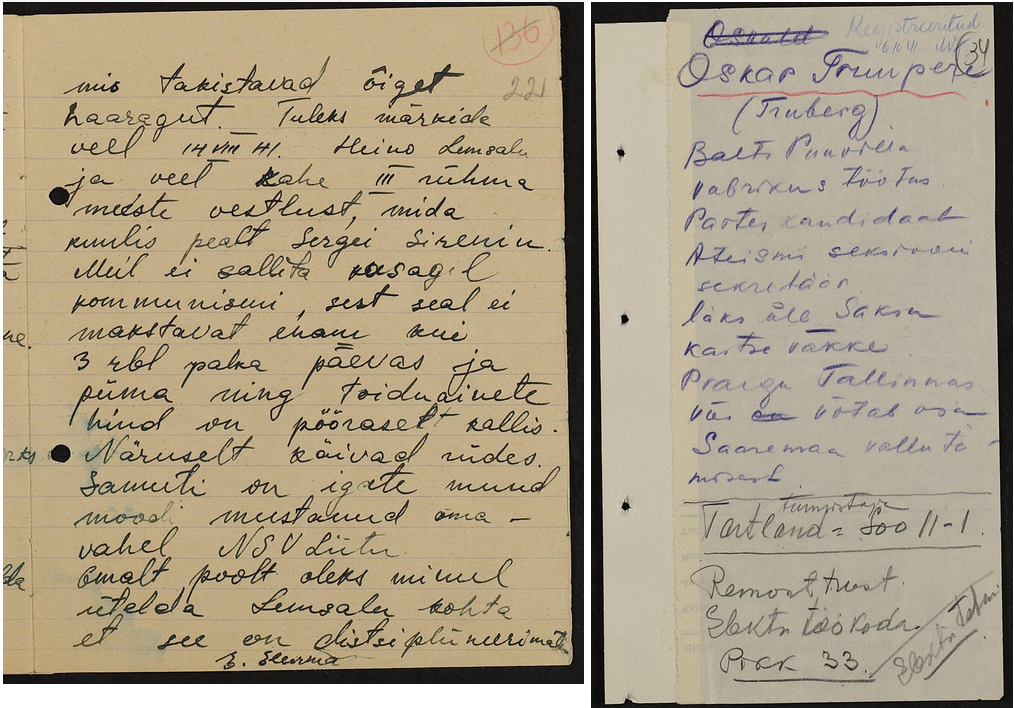 136
221
mis takistavad õiget
haaragut. Tuleks märkida
veel 14 VIII 41. Heino Lemsalu
ja veel kahe III rühma
meeste vestlust, mida
kuulis pealt Sergei Sirenin.
Meil ei sallita kusagil
kommunismi, sest seal ei
makstavat enam kui
3 rbl palka päevas ja
piima ning toiduainete
hind on pööraselt kallis.
Näruselt käivad riides.
Samuti on igate muud
moodi mustanud oma-
vahel NSV Liitu.
Omalt poolt oleks minul
ütelda Lemsalu kohta
et see on distsiplineerimata
Oskald Registreeritud
34
Oskar Trumpere
(Truberg)
Balti Puuvilla
vabrikus töötas
Partei kandidaat
Ateismi sektsiooni
sekretäär
läks üle Saksa
kaitse väkke
Praegu Tallinnas
või on võtab osa
Saaremaa valluta-
misest
Tartland = Soo 11-1.
Remont, trust.
Elektri töökoda.
Pikk 33.